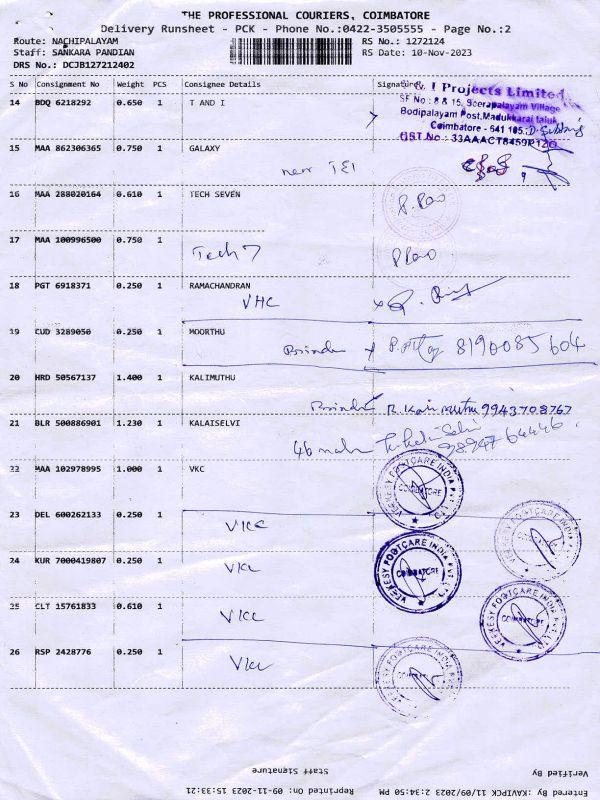 THE PROFESSIONAL COURIERS, COIMBATORE
Delivery Runsheet - PCK - Phone No.:0422-3505555 - Page No.:2
Route: NACHIPALAYAM RS No.: 1272124
Staff: SANKARA PANDIAN RS Date: 10-Nov-2023
DRS No.: DCJB127212402
S No Consignment No Weight PCS Consignee Details Signature
14 BDQ 6218292 0.650 1 T AND I
& I Projects Limited
SF No : 8 & 15, Seerapalayam Village
Bodipalayam Post, Madukkarai taluk
Coimbatore - 641 105.
GST No : 33AAACT8459R1ZO
15 MAA 862306365 0.750 1 GALAXY
near TEI
16 MAA 288020164 0.610 1 TECH SEVEN
P. Rao
17 MAA 100996500 0.750 1
Tech 7
P Rao
18 PGT 6918371 0.250 1 RAMACHANDRAN
VHC
19 CUD 3289050 0.250 1 MOORTHU
8190085604
20 HRD 50567137 1.400 1 KALIMUTHU
R. Kali Muthu 9943708767
21 BLR 500886901 1.230 1 KALAISELVI
98947 64446
22 MAA 102978995 1.000 1 VKC
VEEKESY FOOTCARE INDIA PVT LTD
COIMBATORE
23 DEL 600262133 0.250 1
VKC
VEEKESY FOOTCARE INDIA PVT LTD
COIMBATORE
24 KUR 7000419807 0.250 1
VKC
VEEKESY FOOTCARE INDIA PVT LTD
COIMBATORE
25 CLT 15761833 0.610 1
VKC
VEEKESY FOOTCARE INDIA PVT LTD
COIMBATORE
26 RSP 2428776 0.250 1
VKC
VEEKESY FOOTCARE INDIA PVT LTD
COIMBATORE
Staff Signature Verified By
Reprinted On: 09-11-2023 15:33:21 Entered By: KAVIPCK 11/09/2023 2:34:50 PM